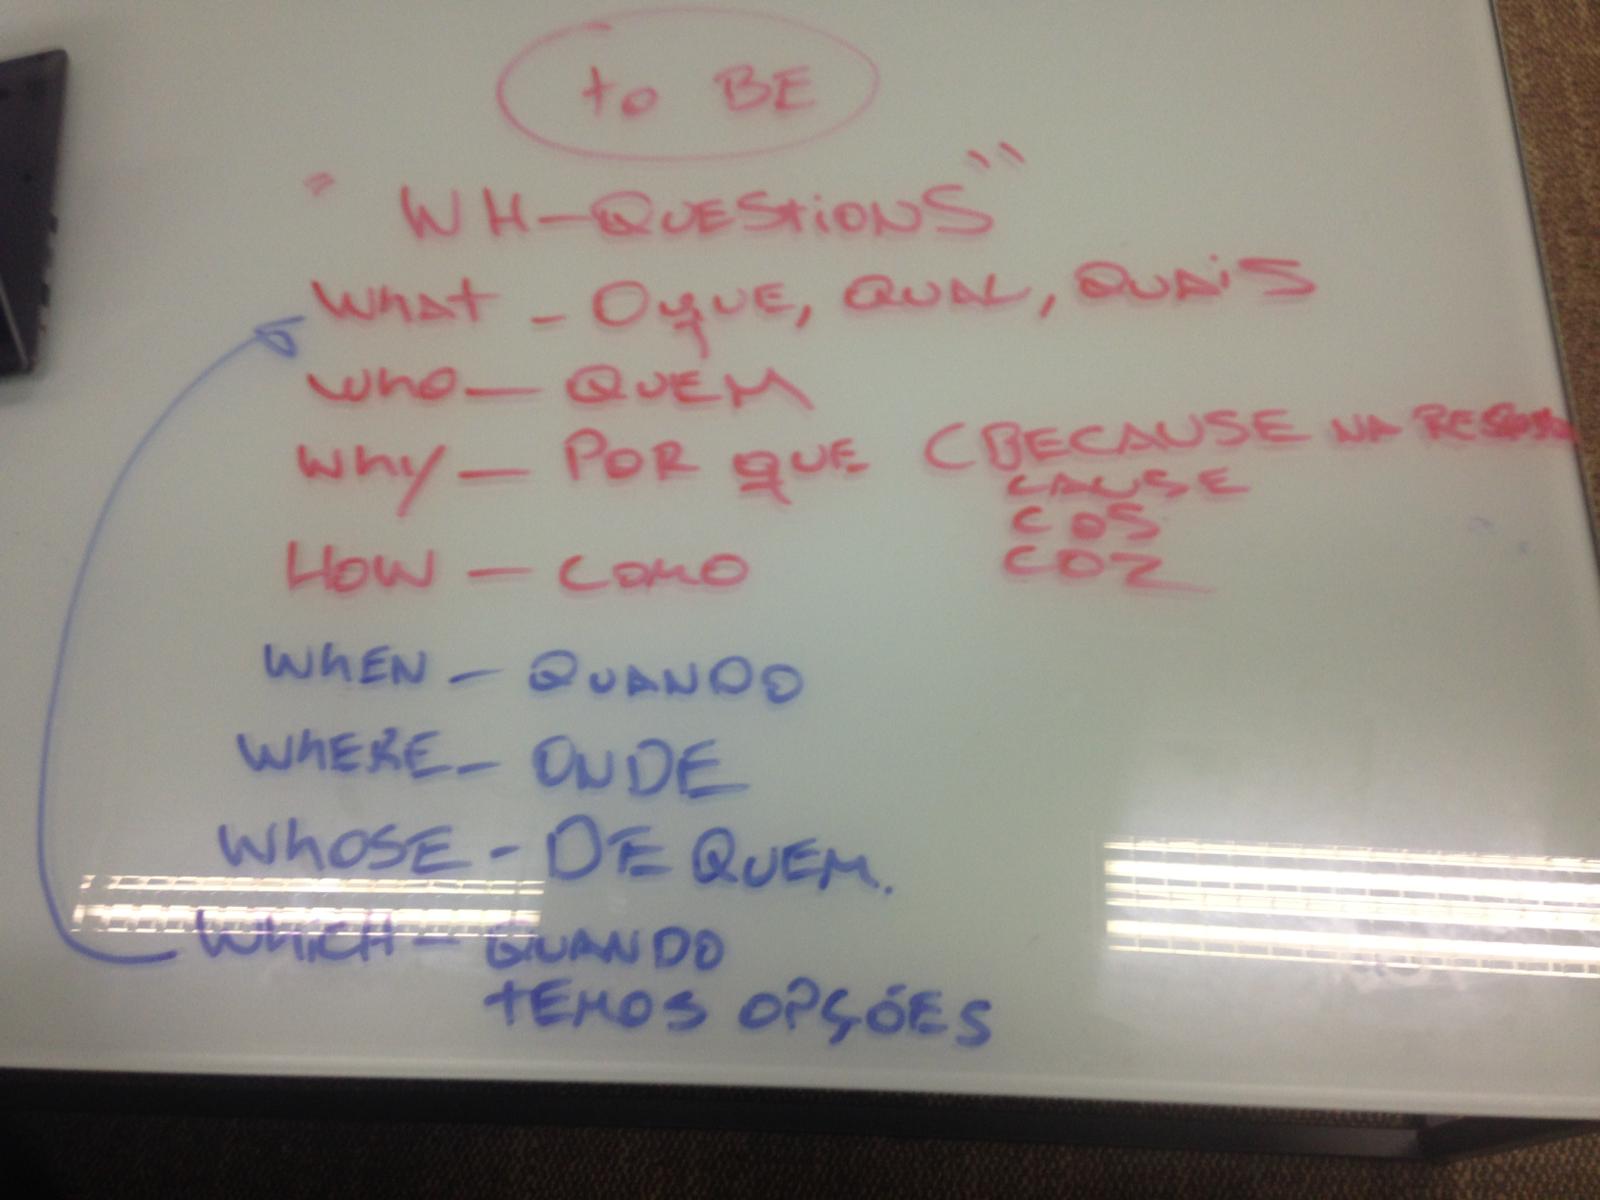 to BE
" WH-QUESTIONS "
WHAT - O QUE, QUAL, QUAIS
WHO - QUEM
WHY - POR QUE (BECAUSE NA
CAUSE
COS
COZ
HOW - COMO
WHEN - QUANDO
WHERE - ONDE
WHOSE - DE QUEM.
WHICH - QUANDO
TEMOS OPÇÕES